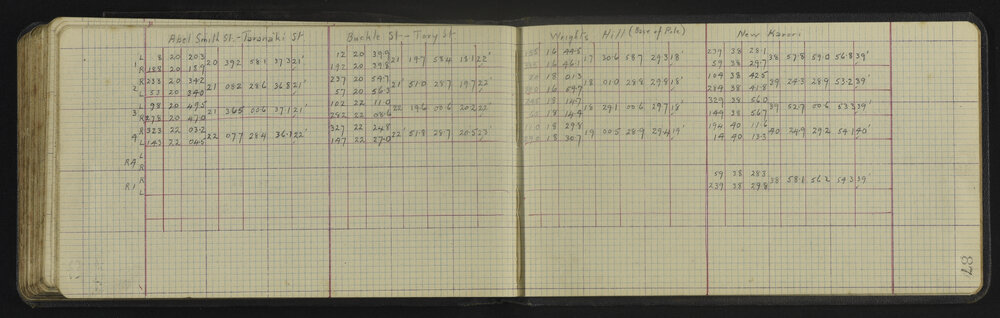 Abel Smith St. - Taranaki St Buckle St. - Tory St Wrights Hill (Base of Pole) New Karori
1 L 8 20 20.3 20 39.2 58.1 37.3 21' 12 20 39.9 21 19.7 58.4 18.1 22' 16 44.5 17 30.6 58.7 29.3 18' 239 38 28.1 38 57.8 59.0 56.8 39'
R 188 20 18.9 192 20 39.8 16 46.1 59 38 29.7
2 R 233 20 34.2 21 08.2 28.6 36.8 21' 237 20 54.7 21 51.0 28.7 19.7 22' 20 18 01.3 18 01.0 28.8 29.8 18' 104 38 42.5 39 24.3 28.9 53.2 39'
L 53 20 34.0 57 20 56.3 16 59.7 284 38 41.8
3 L 98 20 49.5 21 36.5 00.6 37.1 21' 102 22 11.0 22 19.6 00.6 20.2 22' 18 14.7 18 29.1 00.6 29.7 18' 329 38 56.0 39 52.7 00.6 53.3 39'
R 278 20 47.0 282 22 08.6 18 14.4 149 38 56.7
4 R 323 22 03.2 22 07.7 28.4 36.1 22' 327 22 24.8 22 51.8 28.7 20.5 23' 110 18 29.8 19 00.5 28.9 29.4 19' 194 40 11.6 40 24.9 29.2 54.1 40'
L 143 22 04.5 147 22 27.0 18 30.7 14 40 13.3
R4 L
R
R1 R 59 38 28.3 38 58.1 56.2 54.3 39'
L 239 38 29.8
87